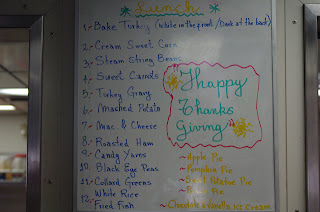 Lunch
1.- Bake Turkey (White in the front / Dark at the back)
2.- Cream Sweet Corn
3.- Steam String Beans
4.- Sweet Carrots
5.- Turkey Gravy
6.- Mashed Potato
7.- Mac & Cheese
8.- Roasted Ham
9.- Candy Yams
10. Black Eye Peas
11.- Collard Greens
White Rice
12.- Fried Fish
Thappy
Thanks
Giving
~ Apple Pie
~ Pumpkin Pie
~ Sweet Potatoe Pie
Pie
~ Chocolate & Vanilla Ice Cream